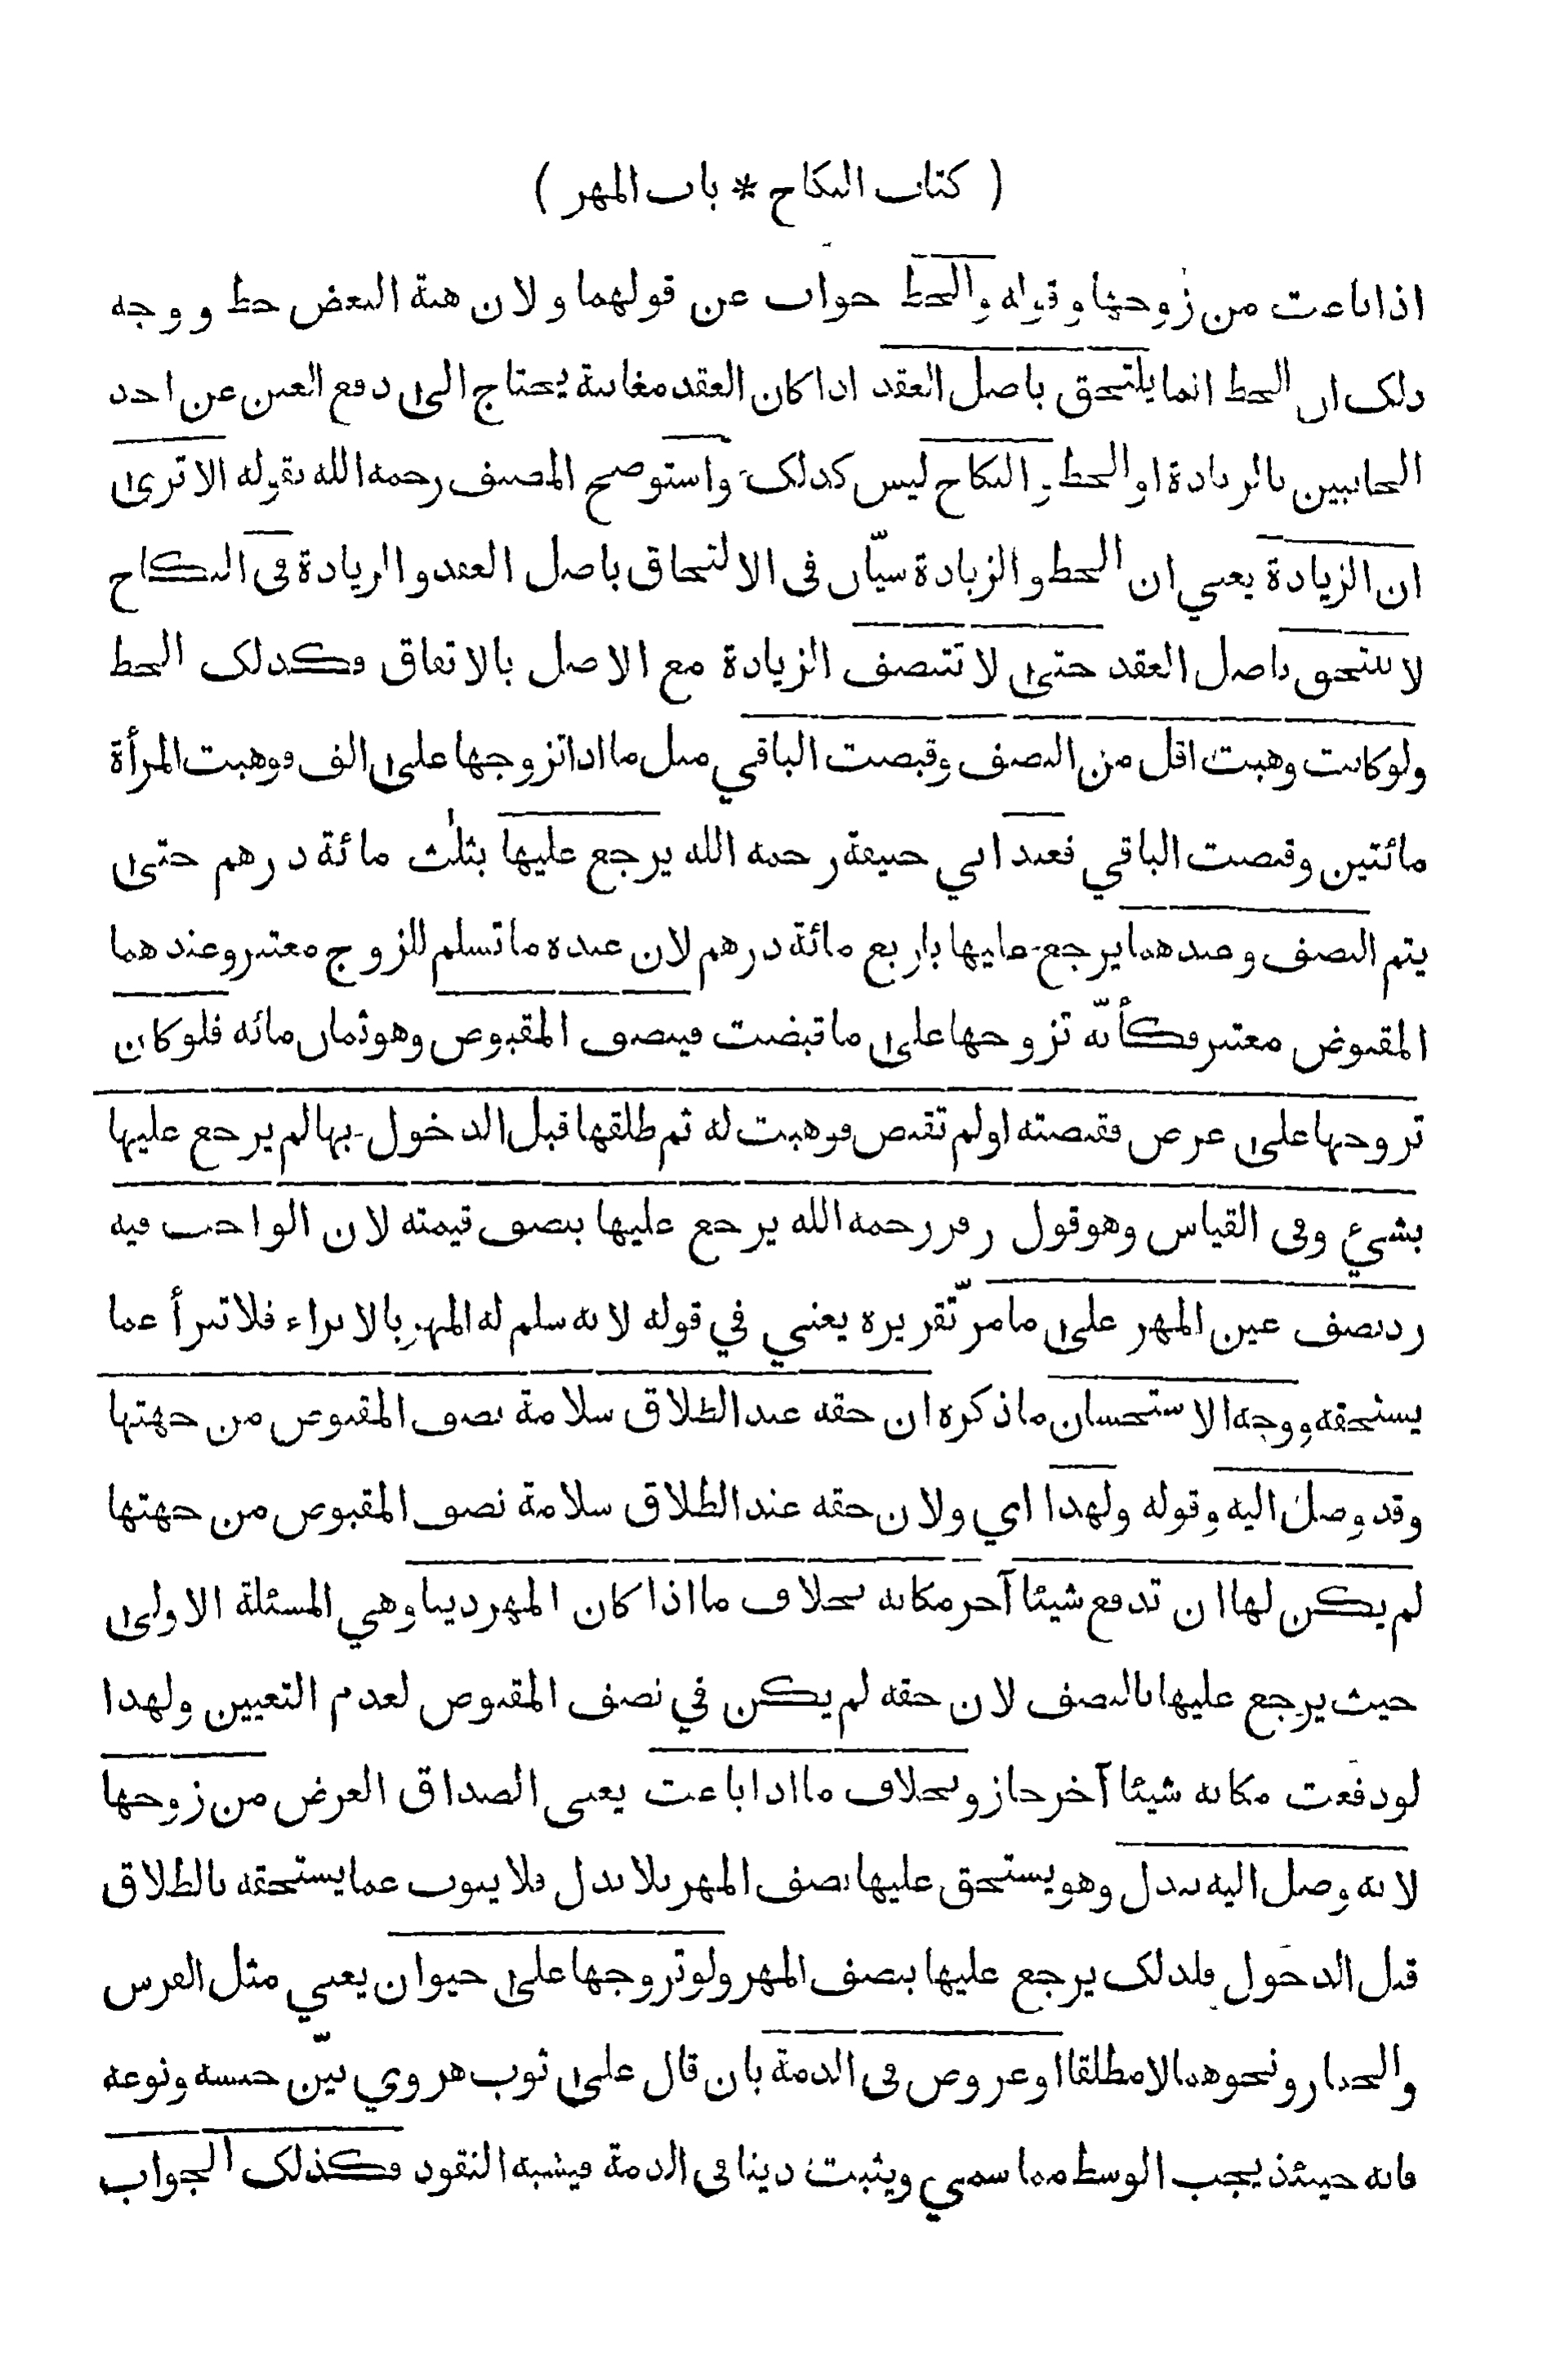 ( كتاب النكاح * باب المهر )
اذا باعت من زوجها وقوله والحط جواب عن قولهما ولان هبة البعض حط ووجه
ذلك ان الحط انما يلتحق باصل العقد اذا كان العقد مغابنة يحتاج الى دفع الغبن عن احد
الجانبين بالزيادة او الحط والنكاح ليس كذلك واستوضح المصنف رحمه الله بقوله الا ترى
ان الزيادة يعني ان الحط والزيادة سيّان فى الالتحاق باصل العقد والزيادة فى النكاح
لا تلتحق باصل العقد حتى لا تتنصف الزيادة مع الاصل بالاتفاق فكذلك الحط
ولو كانت وهبت اقل من النصف وقبضت الباقي مثل ما اذا تزوجها على الف فوهبت المرأة
مائتين وقبضت الباقي فعند ابي حنيفة رحمه الله يرجع عليها بثلث مائة درهم حتى
يتم النصف وعندهما يرجع عليها باربع مائة درهم لان عنده ما تسلم للزوج معتبر وعندهما
المقبوض معتبر فكأنّه تزوجها على ما قبضت فينصف المقبوض وهو ثمان مائه فلو كان
تزوجها على عرض فقبضته او لم تقبض فوهبت له ثم طلقها قبل الدخول بها لم يرجع عليها
بشيء وفى القياس وهو قول زفر رحمه الله يرجع عليها بنصف قيمته لان الواجب فيه
رد نصف عين المهر على ما مرّ تقريره يعني في قوله لانه سلم له المهر بالابراء فلا تبرأ عما
يستحقه ووجه الاستحسان ما ذكره ان حقه عند الطلاق سلامة نصف المقبوض من جهتها
وقد وصل اليه وقوله ولهذا اي ولان حقه عند الطلاق سلامة نصف المقبوض من جهتها
لم يكن لها ان تدفع شيئا آخر مكانه بخلاف ما اذا كان المهر دينا وهي المسئلة الاولى
حيث يرجع عليها بالنصف لان حقه لم يكن في نصف المقبوض لعدم التعيين ولهذا
لو دفعت مكانه شيئا آخر جاز وبخلاف ما اذا باعت يعنى الصداق العرض من زوجها
لانه وصل اليه ببدل وهو يستحق عليها نصف المهر بلا بدل فلا ينوب عما يستحقه بالطلاق
قبل الدخول فلذلك يرجع عليها بنصف المهر ولو تزوجها على حيوان يعني مثل الفرس
والحمار ونحوهما لا مطلقا او عروض فى الذمة بان قال على ثوب هروي بيّن جنسه ونوعه
فانه حينئذ يجب الوسط مما سمي ويثبت دينا فى الذمة فيشبه النقود فكذلك الجواب